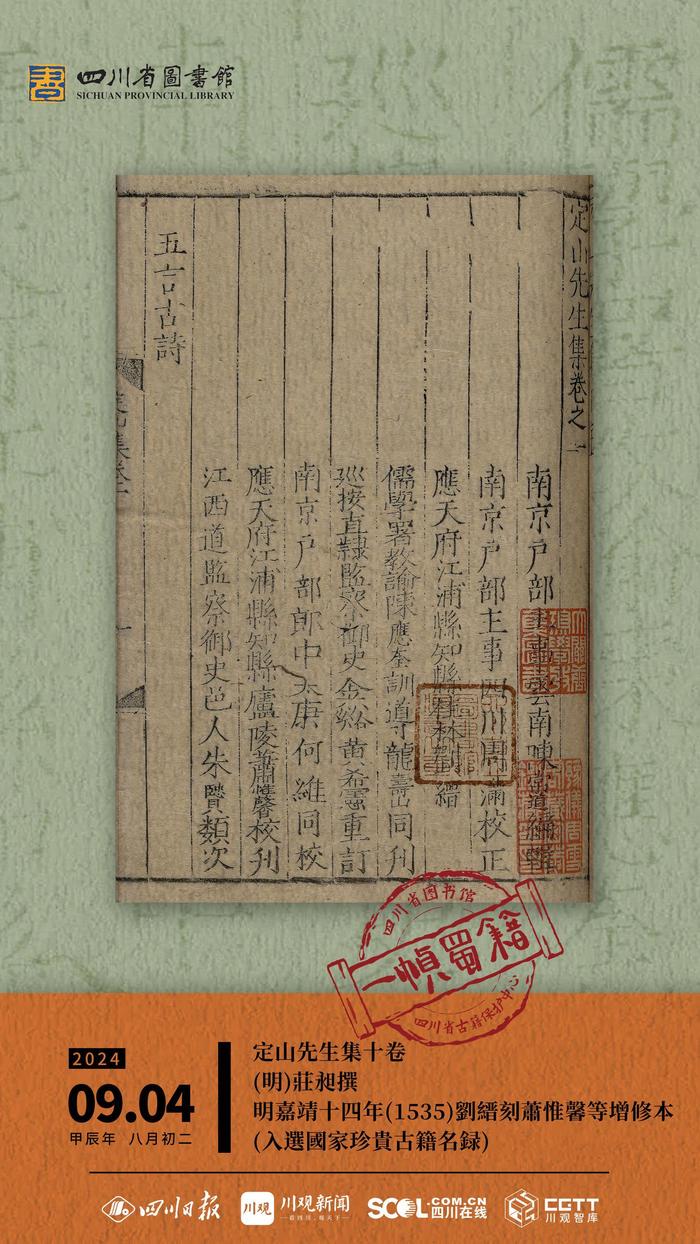 四川省圖書館
SICHUAN PROVINCIAL LIBRARY
定山先生集卷之一
南京戶部主事雲南陳常道編輯
南京戶部主事四川周滿校正
應天府江浦縣知縣桂林劉縉
儒學署教諭陳應奎訓導龍壽山同刊
巡按直隸監察御史金谿黃希憲重訂
南京戶部郎中太康何維同校
應天府江浦縣知縣廬陵蕭惟馨校刊
江西道監察御史邑人朱賢類次
五言古詩
四川省图书馆
一幀蜀籍
四川省古籍保护中心
2024
09.04
甲辰年 八月初二
定山先生集十卷
(明)莊昶撰
明嘉靖十四年(1535)劉縉刻蕭惟馨等增修本
(入選國家珍貴古籍名録)
四川日报
川观
川观新闻
SCOL.COM.CN
四川在线
CGTT
川观智库